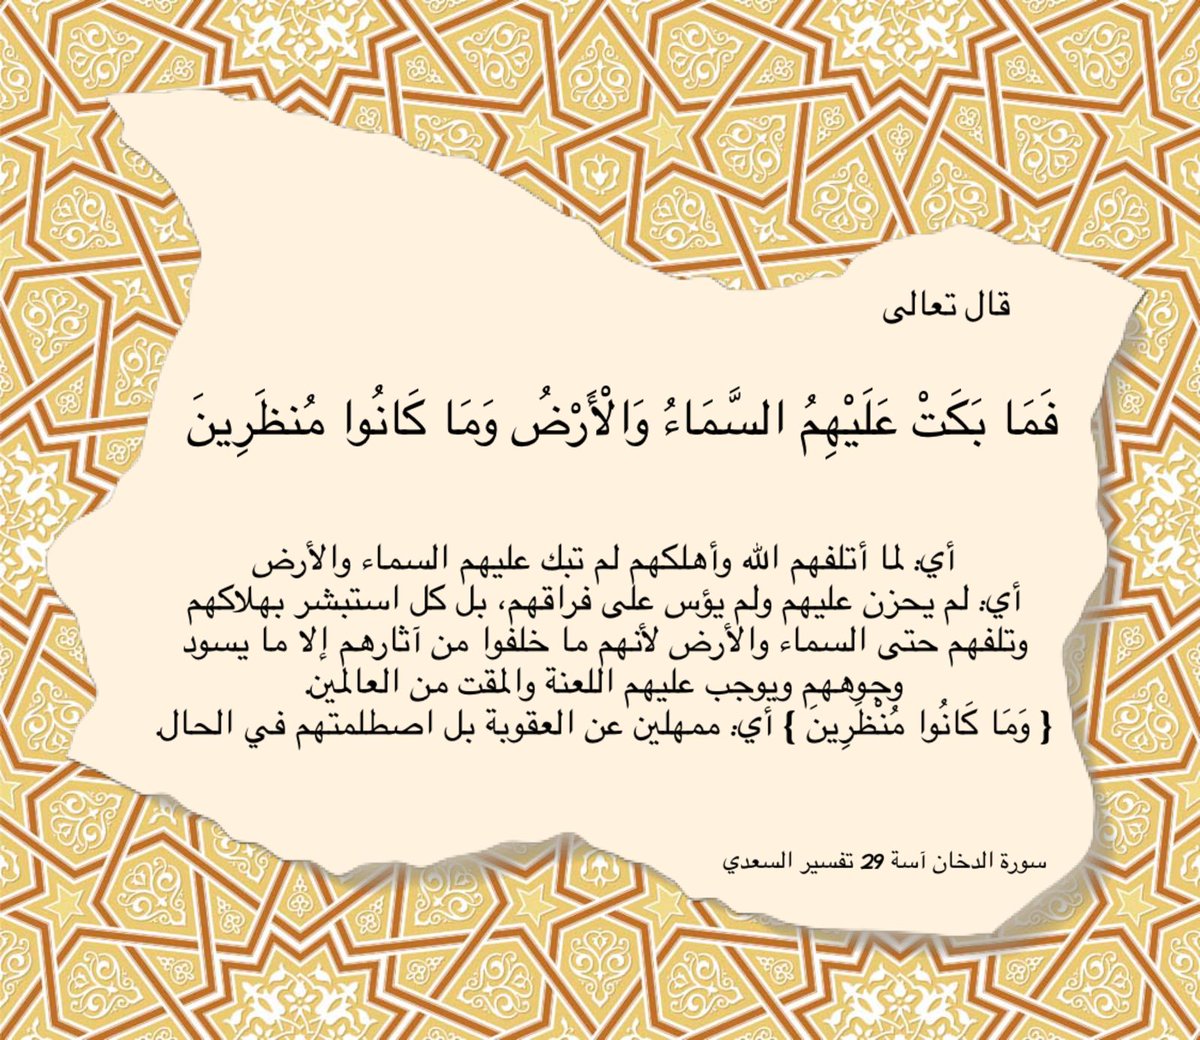 قال تعالى
فَمَا بَكَتْ عَلَيْهِمُ السَّمَاءُ وَالْأَرْضُ وَمَا كَانُوا مُنظَرِينَ
أي: لما أتلفهم الله وأهلكهم لم تبك عليهم السماء والأرض
أي: لم يحزن عليهم ولم يؤس على فراقهم، بل كل استبشر بهلاكهم
وتلفهم حتى السماء والأرض لأنهم ما خلفوا من آثارهم إلا ما يسود
وجوههم ويوجب عليهم اللعنة والمقت من العالمين.
{ وَمَا كَانُوا مُنْظَرِينَ } أي: ممهلين عن العقوبة بل اصطلمتهم في الحال.
سورة الدخان آسة 29 تفسير السعدي